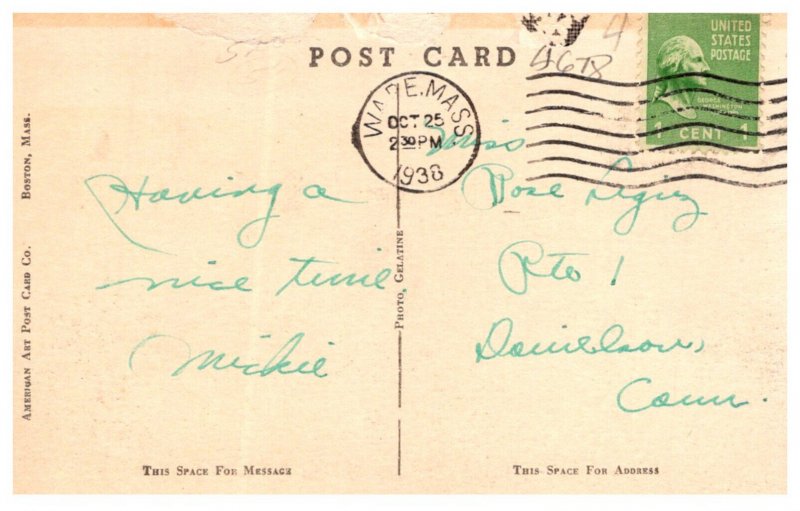 POST CARD
4678
4
UNITED
STATES
POSTAGE
GEORGE
WASHINGTON
1 CENT 1
WARE, MASS.
OCT 25
2 30 PM
1938
Having a
nice time.
Mickie
Miss
Rose
Rte 1
Danielson,
Conn.
PHOTO, GELATINE
AMERICAN ART POST CARD CO. BOSTON, MASS.
THIS SPACE FOR MESSAGE
THIS SPACE FOR ADDRESS